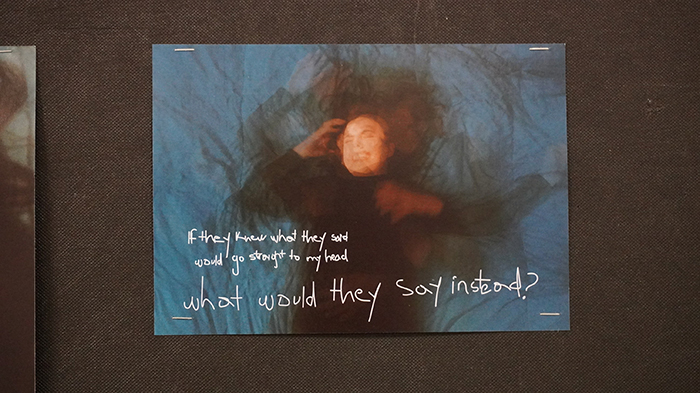 If they knew what they said
would go straight to my head
what would they say instead?